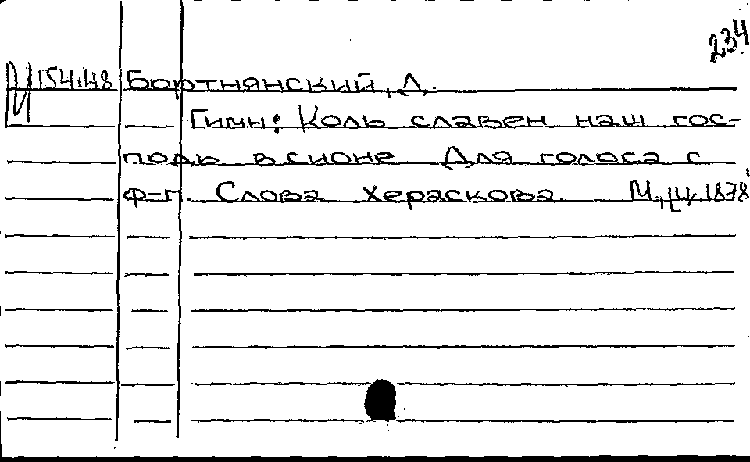 234
И 154.48 Бортнянский, Д.
Гимн: Коль славен наш гос-
подь в сионе Для голоса с
ф-п. Слова Хераскова. М., ц. 1878